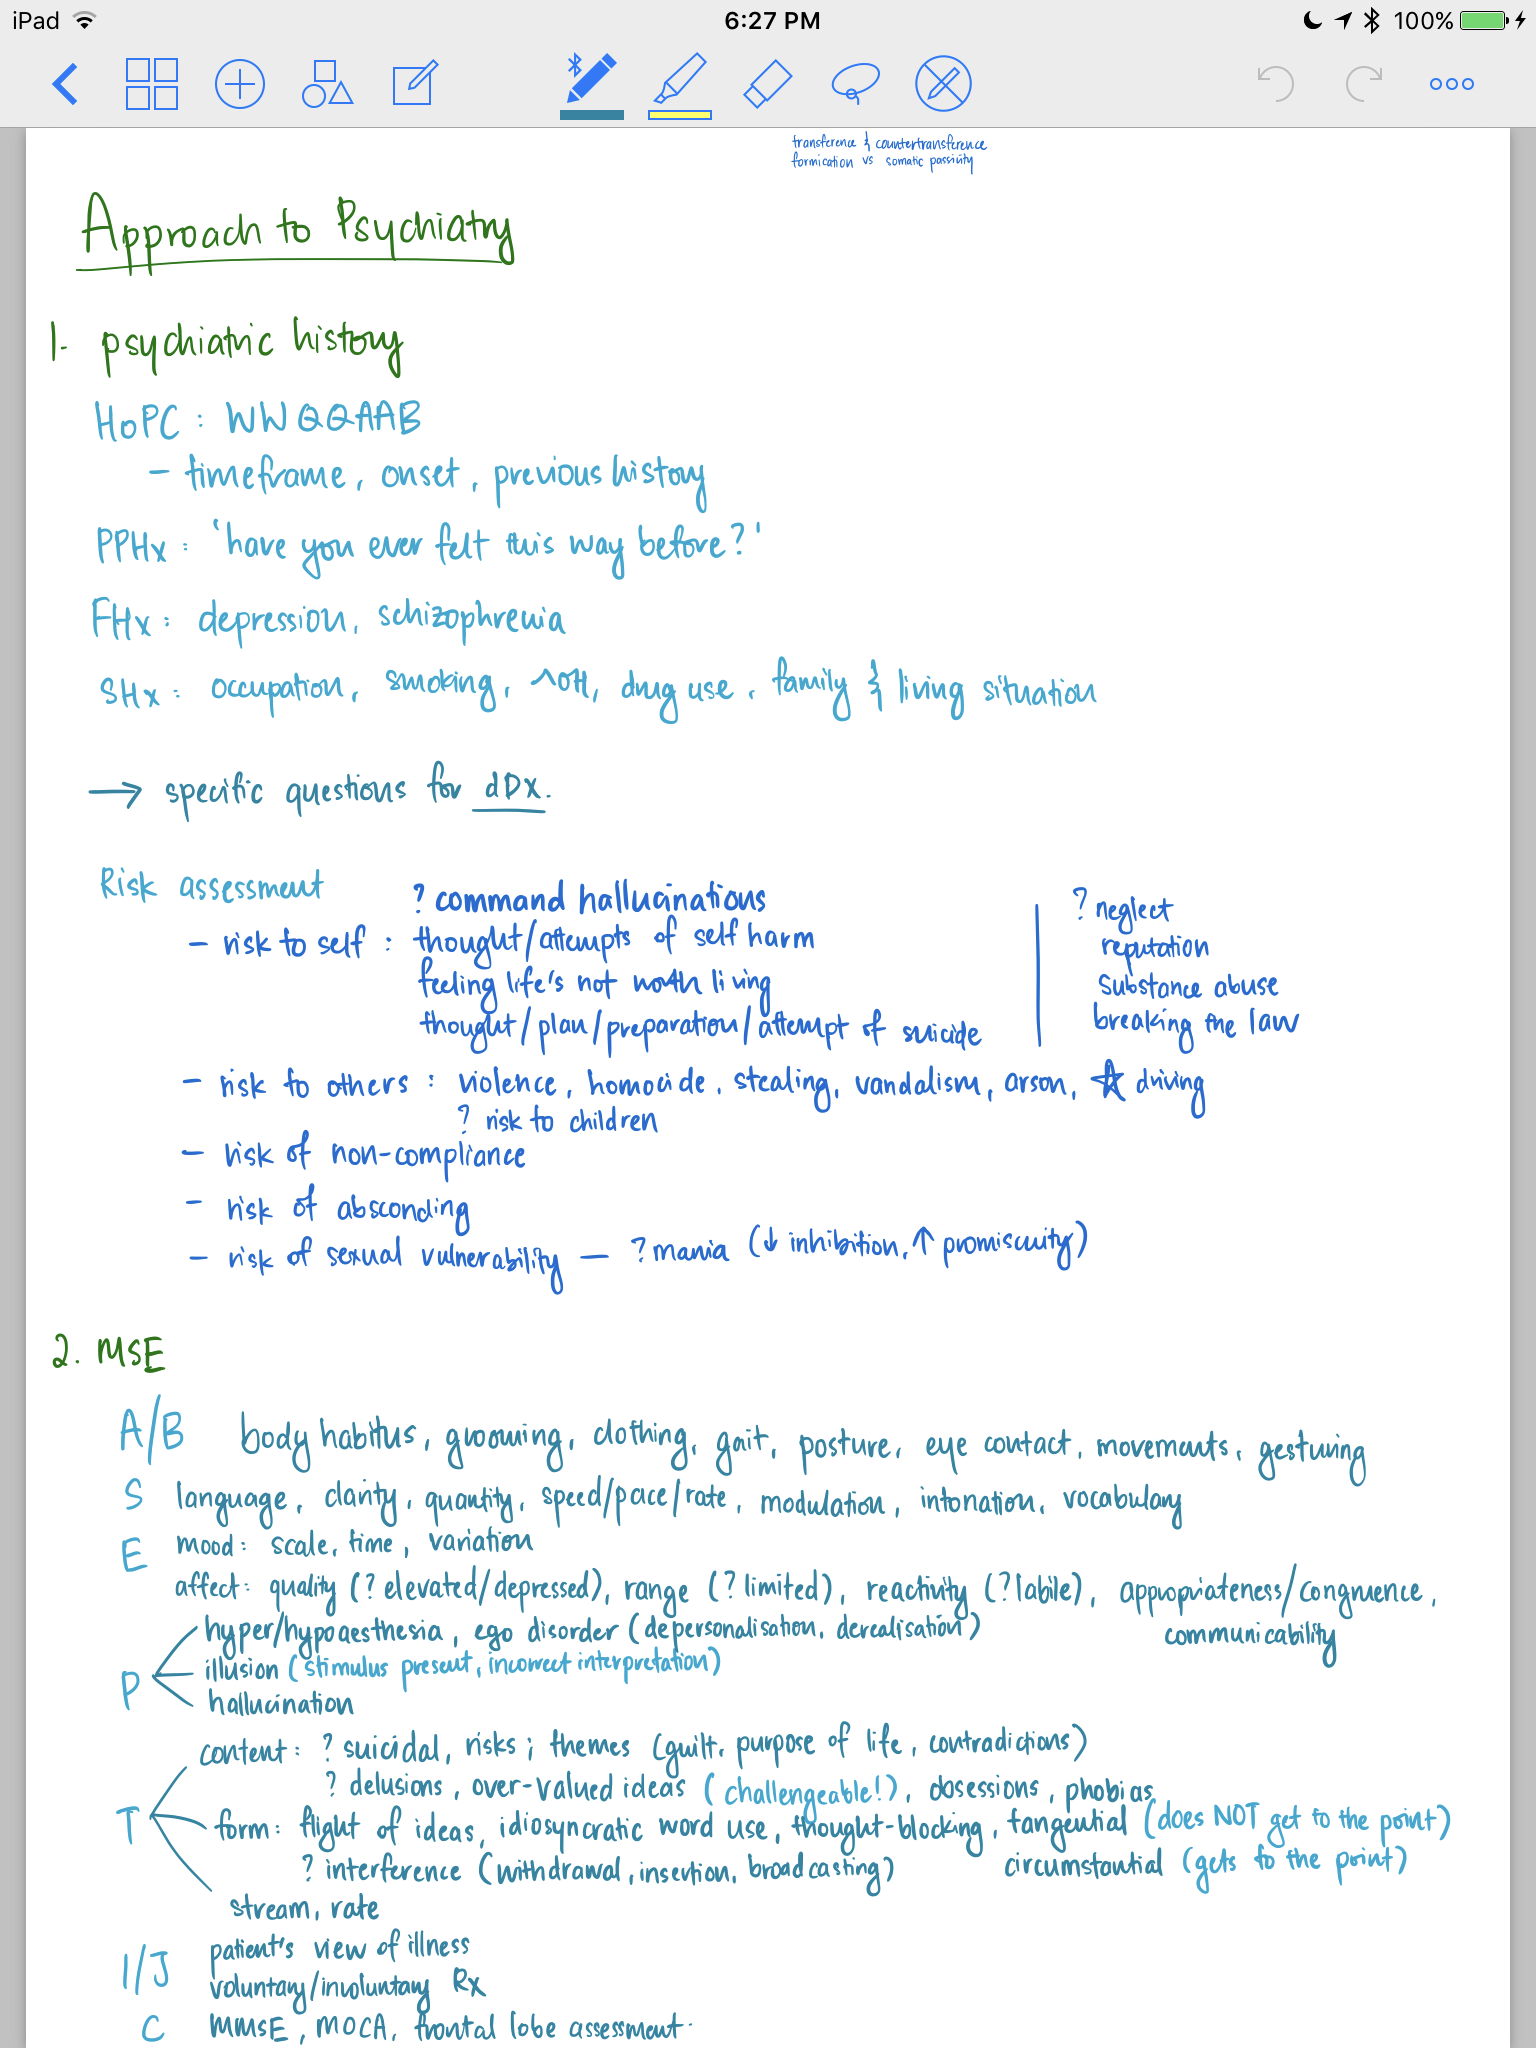 iPad 6:27 PM 100%
transference & countertransference
formication vs somatic passivity
Approach to Psychiatry
1. psychiatric history
HoPC : WWQQAAB
- timeframe, onset, previous history
PPHx : 'have you ever felt this way before?'
FHx : depression, schizophrenia
SHx : occupation, smoking, ^OH, drug use, family & living situation
→ specific questions for dDx.
Risk assessment
? command hallucinations
- risk to self : thought/attempts of self harm
feeling life's not worth living
thought/plan/preparation/attempt of suicide
? neglect
reputation
substance abuse
breaking the law
- risk to others : violence, homocide, stealing, vandalism, arson, ☆ driving
? risk to children
- risk of non-compliance
- risk of absconding
- risk of sexual vulnerability — ? mania (↓ inhibition, ↑ promiscuity)
2. MSE
A/B body habitus, grooming, clothing, gait, posture, eye contact, movements, gesturing
S language, clarity, quantity, speed/pace/rate, modulation, intonation, vocabulary
E mood: scale, time, variation
affect: quality (? elevated/depressed), range (? limited), reactivity (? labile), appropriateness/congruence,
communicability
P hyper/hypoaesthesia, ego disorder (depersonalisation, derealisation)
illusion (stimulus present, incorrect interpretation)
hallucination
T content: ? suicidal, risks; themes (guilt, purpose of life, contradictions)
? delusions, over-valued ideas (challengeable!), obsessions, phobias
form: flight of ideas, idiosyncratic word use, thought-blocking, tangential (does NOT get to the point)
? interference (withdrawal, insertion, broadcasting) circumstantial (gets to the point)
stream, rate
I/J patient's view of illness
voluntary/involuntary Rx
C MMSE, MOCA, frontal lobe assessment.